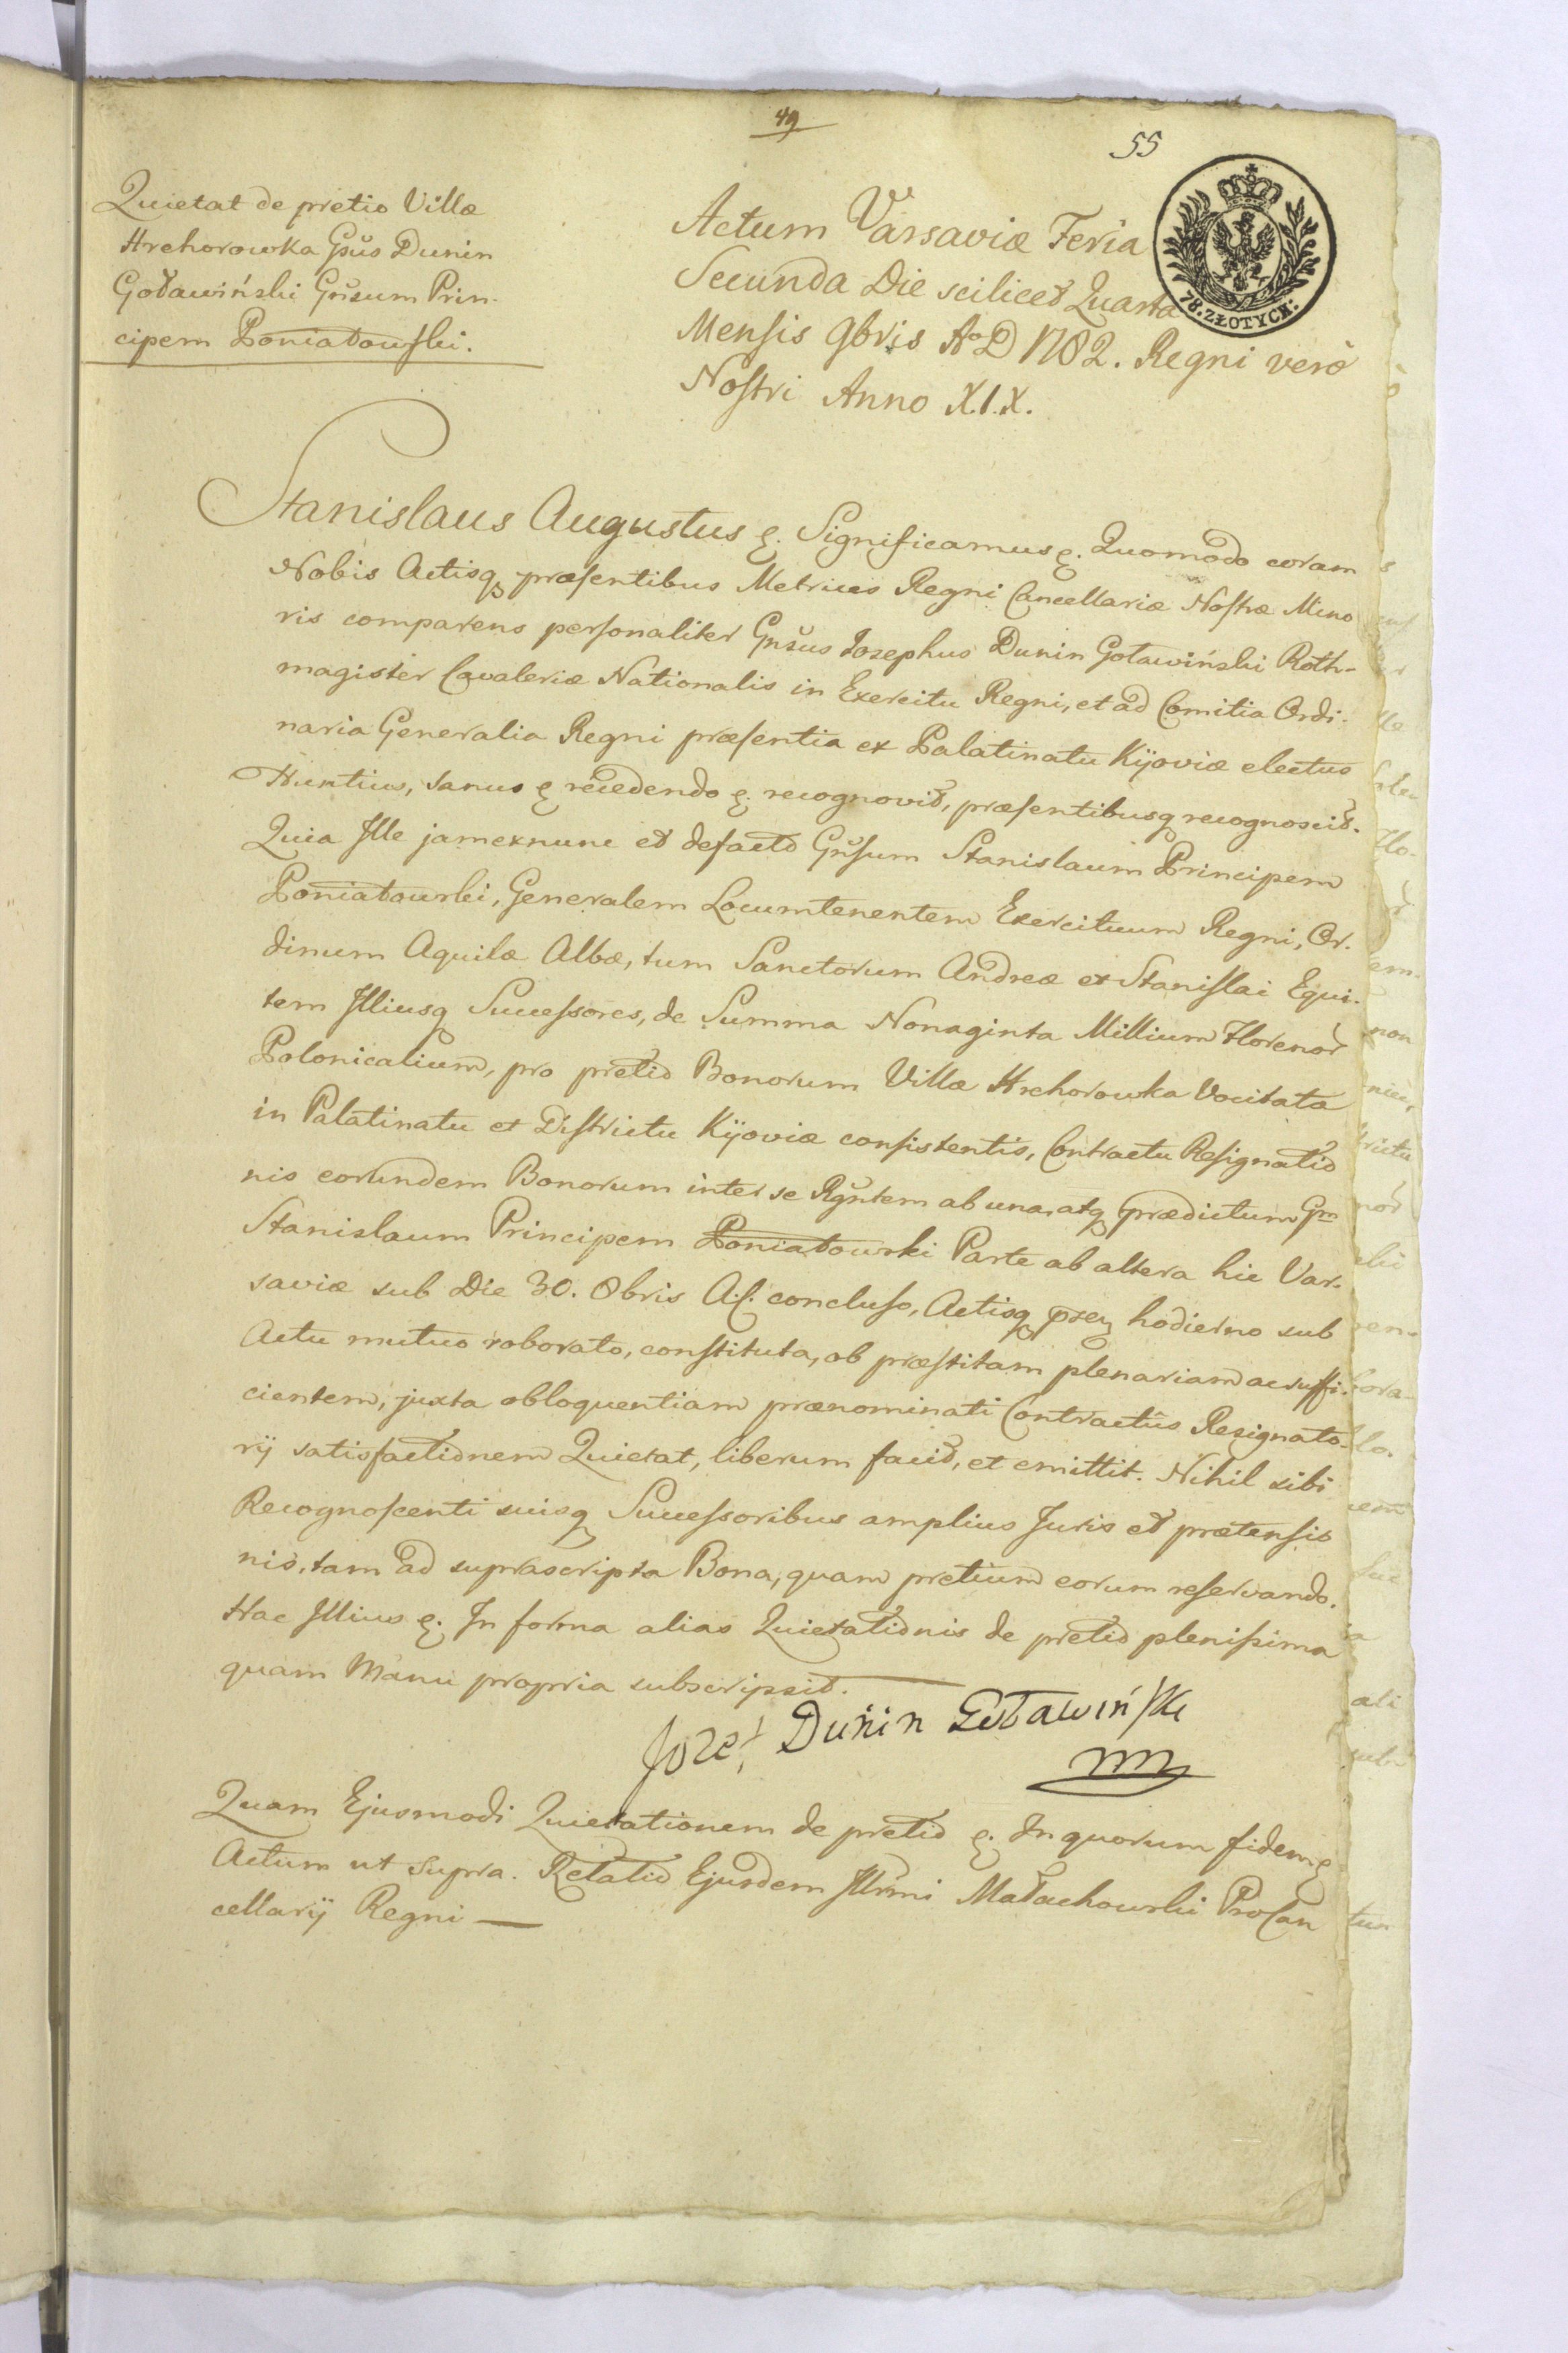 49
55
Quietat de pretio Villæ
Hrehorowka Gsus Dunin
Goławiński Gnsum Prin-
cipem Poniatowski.
Actum Varsaviæ Feria
Secunda Die scilicet Quarta
Mensis 9bris Ao D 1782. Regni vero
Nostri Anno X.I.X.
78. ZŁOTYCH:
Stanislaus Augustus &. Significamus &. Quomodo coram
Nobis Actisq præsentibus Metrices Regni Cancellariæ Nostræ Mino
ris comparens personaliter Gnsus Josephus Dunin Goławiński Roth-
magister Cavaleriæ Nationalis in Exercitu Regni, et ad Comitia Ordi-
naria Generalia Regni præsentia ex Palatinatu Kijoviæ electus
Nuntius, sanus & recedendo &. recognovit, præsentibusq recognoscit.
Quia Ille jamexnunc et defacto Gnsum Stanislaum Principem
Poniatowski, Generalem Locumtenentem Exercituum Regni, Or-
dinum Aquilæ Albæ, tum Sanctorum Andreæ et Stanislai Equi-
tem Illiusq Successores, de Summa Nonaginta Millium Florenor
Polonicalium, pro pretio Bonorum Villæ Hrehorowka Vocitatæ
in Palatinatu et Districtu Kijoviæ consistentis, Contractu Resignatio
nis eorundem Bonorum inter se Rgntem ab una, atq prædictum Gm
Stanislaum Principem Poniatowski Parte ab altera hic Var-
saviæ sub Die 30. 8bris A.C. concluso, Actisq præn hodierno sub
Actu mutuo roborato, constituta, ob præstitam plenariam ac suffi-
cientem, juxta obloquentiam prænominati Contractûs Resignato-
rij satisfactionem Quietat, liberum facit, et emittit. Nihil sibi
Recognoscenti suisq Successoribus amplius Juris et prætensio
nis, tam ad suprascripta Bona, quam pretium eorum reservando.
Hac Illius &. In forma alias Quietationis de pretio plenissima
quam Manu propria subscripsit.
Jozef Dunin Goławiński
mp
Quam Ejusmodi Quietationem de pretio &. In quorum fidem &
Actum ut supra. Relatio Ejusdem Illrmi Małachowski ProCan
cellarij Regni